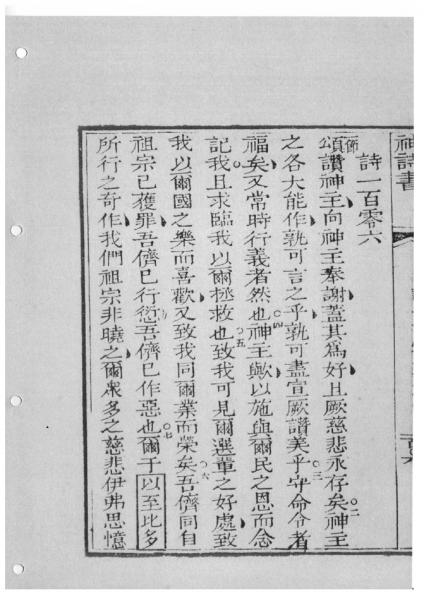 神詩書
詩一百零六
節頌讚神主向神主奉謝蓋其為好且厥慈悲永存矣○二神主
之各大能作孰可言之乎孰可盡宣厥讚美乎○三守命令者
福矣又常時行義者然也○四神主歟以施與爾民之恩而念
記我且求臨我以爾拯救也○五致我可見爾選輩之好處致
我以爾國之樂而喜歡又致我同爾業而榮矣○六吾儕同自
祖宗已獲罪吾儕已行愆吾儕已作惡也○七爾于以至比多
所行之奇作我們祖宗非曉之爾眾多之慈悲伊弗思憶